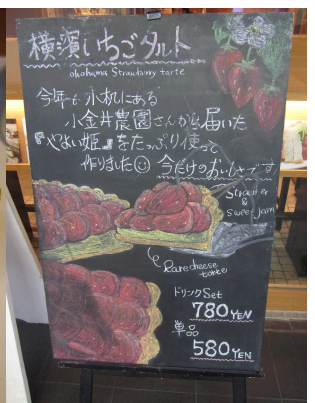 横濱いちごタルト
okohama Strawberry tarte
今年も小机にある
小金井農園さんから届いた
『やよい姫』をたっぷり使って
作りました☺ 今だけのおいしさです
&
sweet jam
Rare cheese
tarte
ドリンクSet
780YEN
単品
580YEN